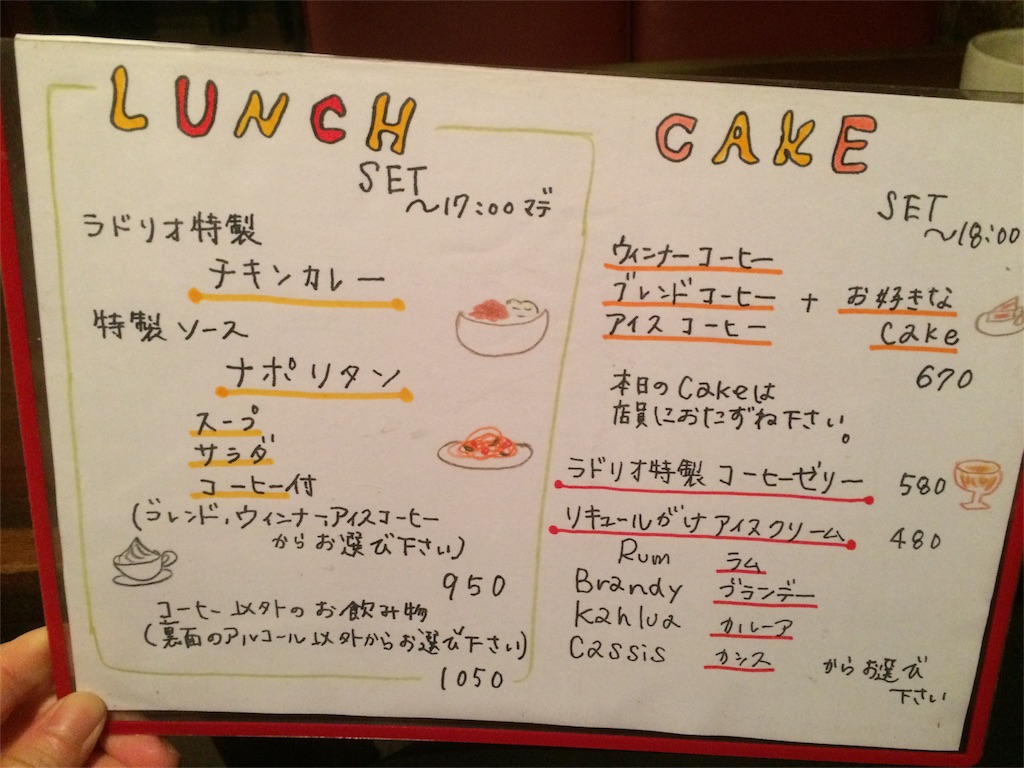 LUNCH
SET
～17:00マデ
ラドリオ特製
チキンカレー
特製ソース
ナポリタン
スープ
サラダ
コーヒー付
(ブレンド、ウィンナー、アイスコーヒー
からお選び下さい)
950
コーヒー以外のお飲み物
(裏面のアルコール以外からお選び下さい)
1050
CAKE
SET
～18:00
ウィンナーコーヒー
ブレンドコーヒー + お好きな
アイスコーヒー Cake
670
本日のCakeは
店員におたずね下さい。
ラドリオ特製 コーヒーゼリー 580
リキュールがけアイスクリーム 480
Rum ラム
Brandy ブランデー
Kahlua カルーア
Cassis カシス
からお選び
下さい